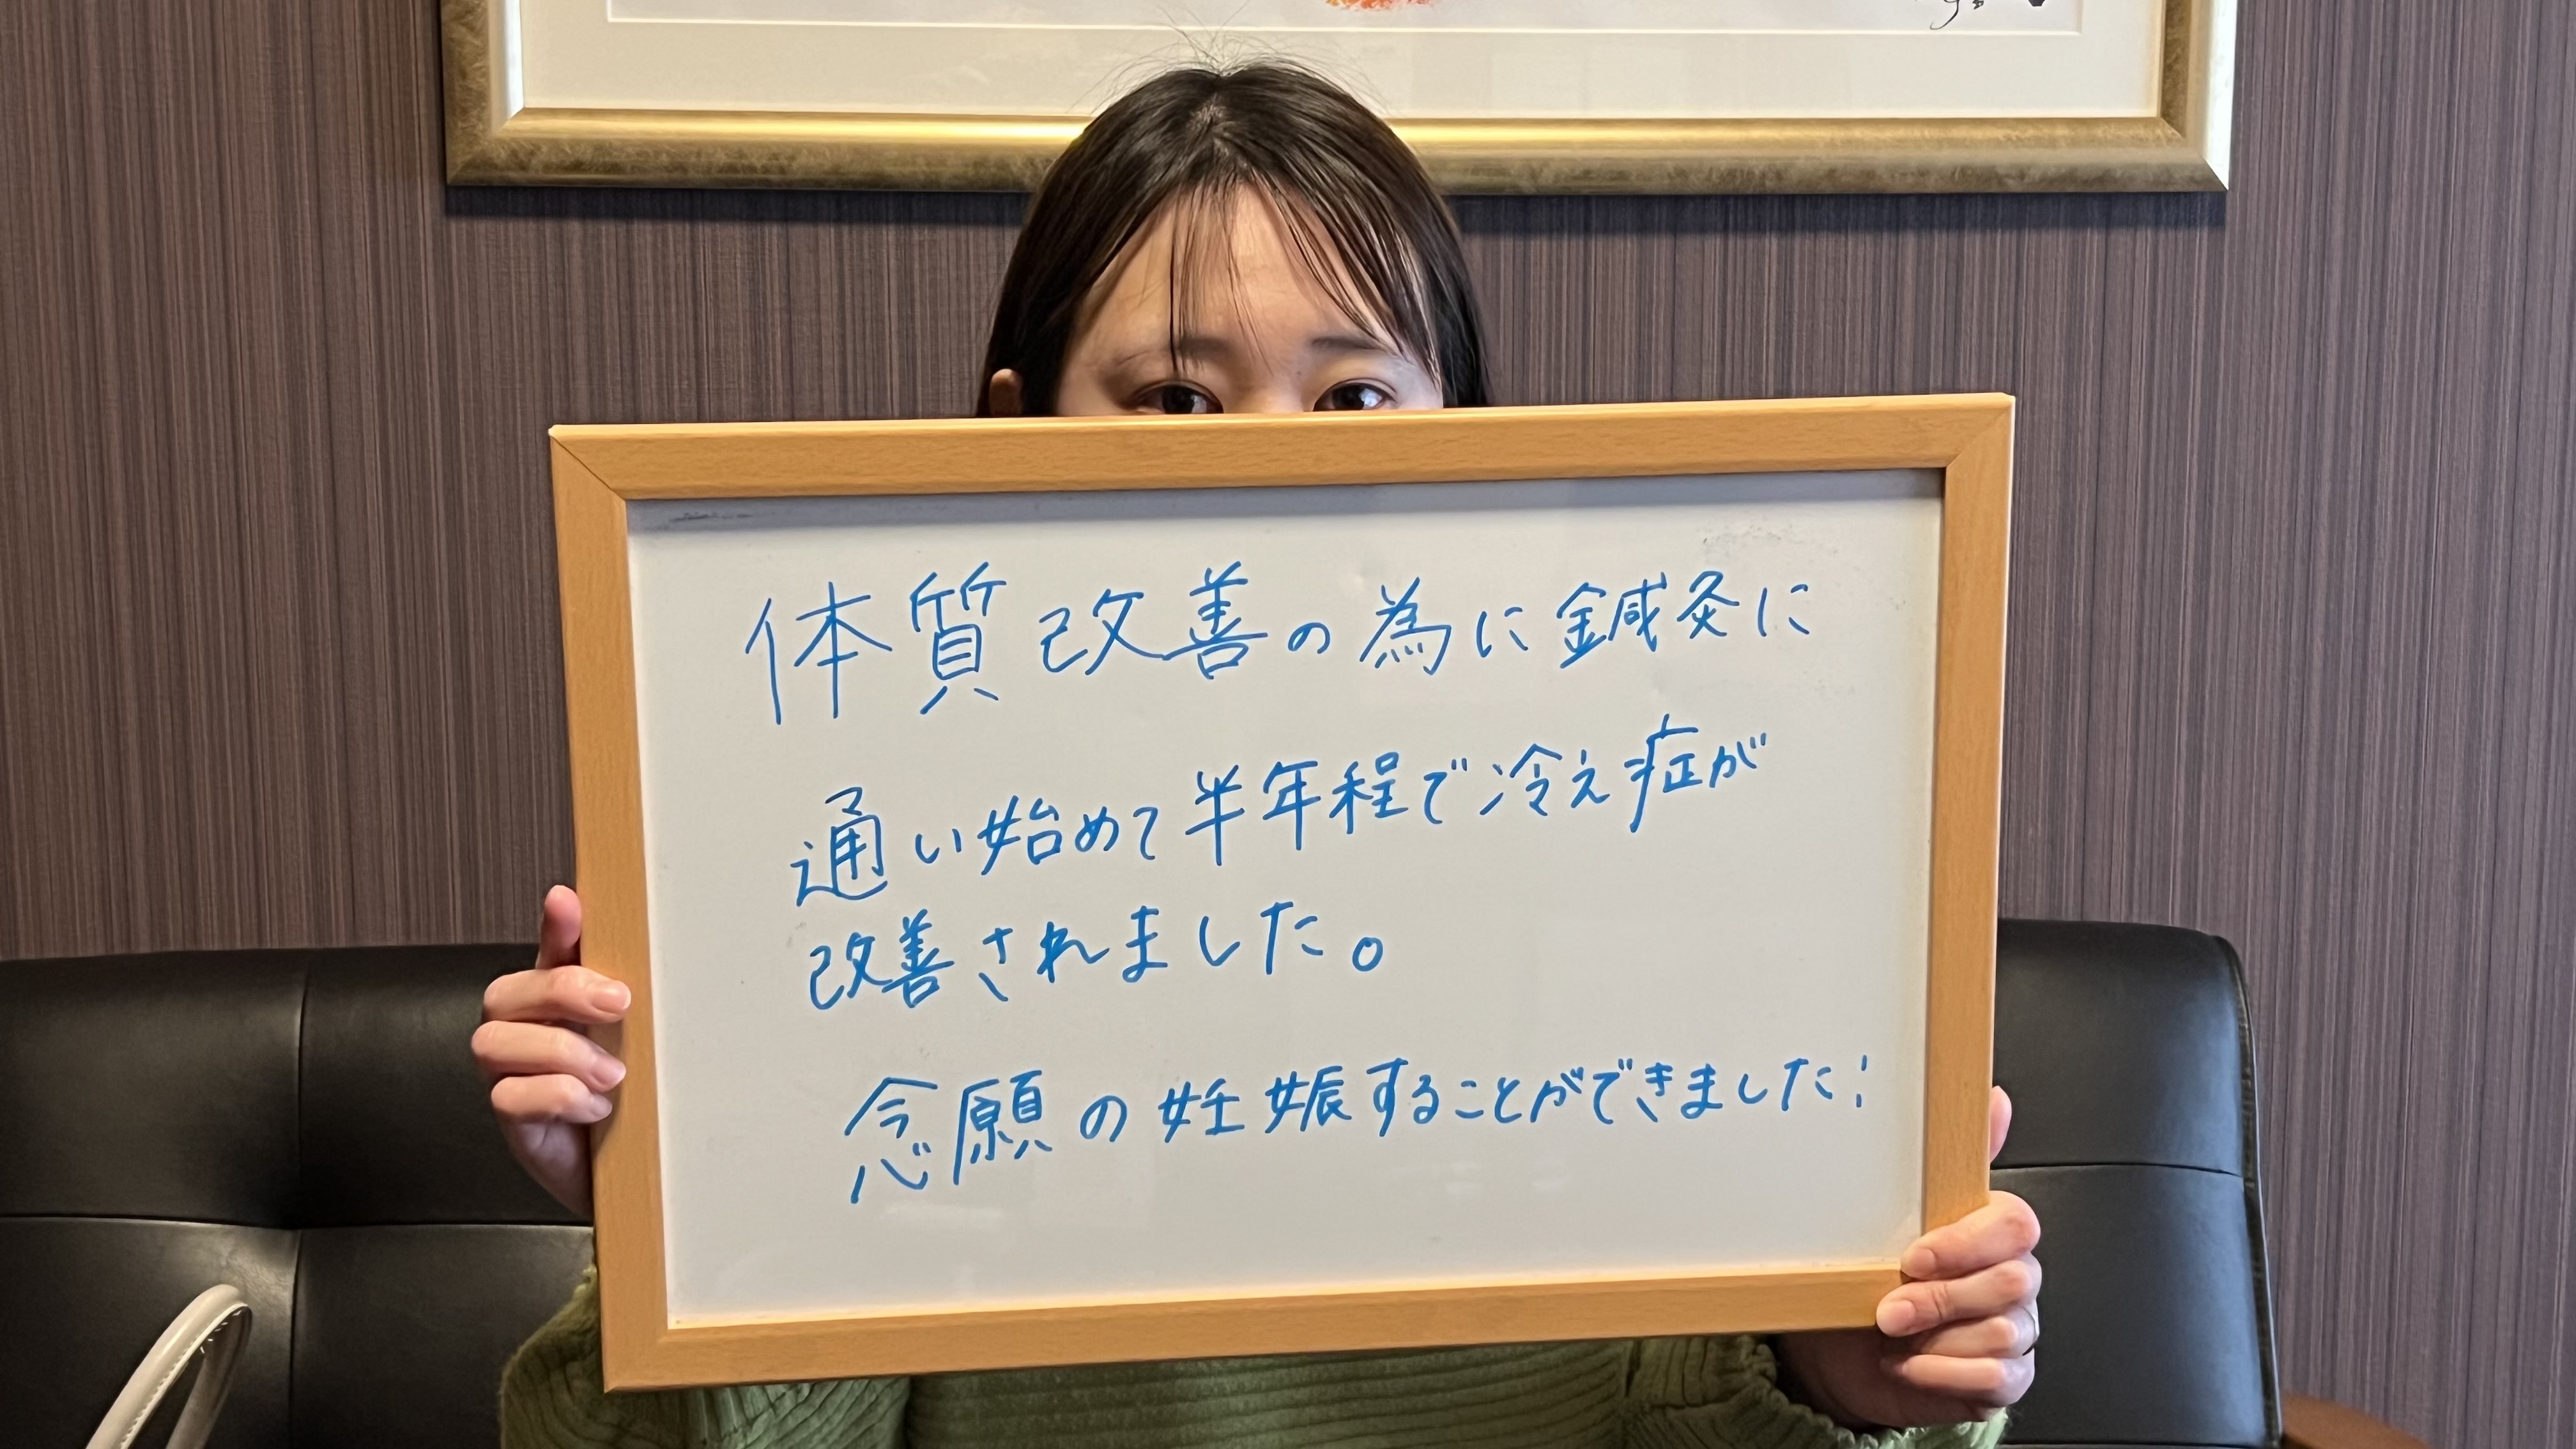 体質改善の為に鍼灸に
通い始めて半年程で冷え症が
改善されました。
念願の妊娠することができました!